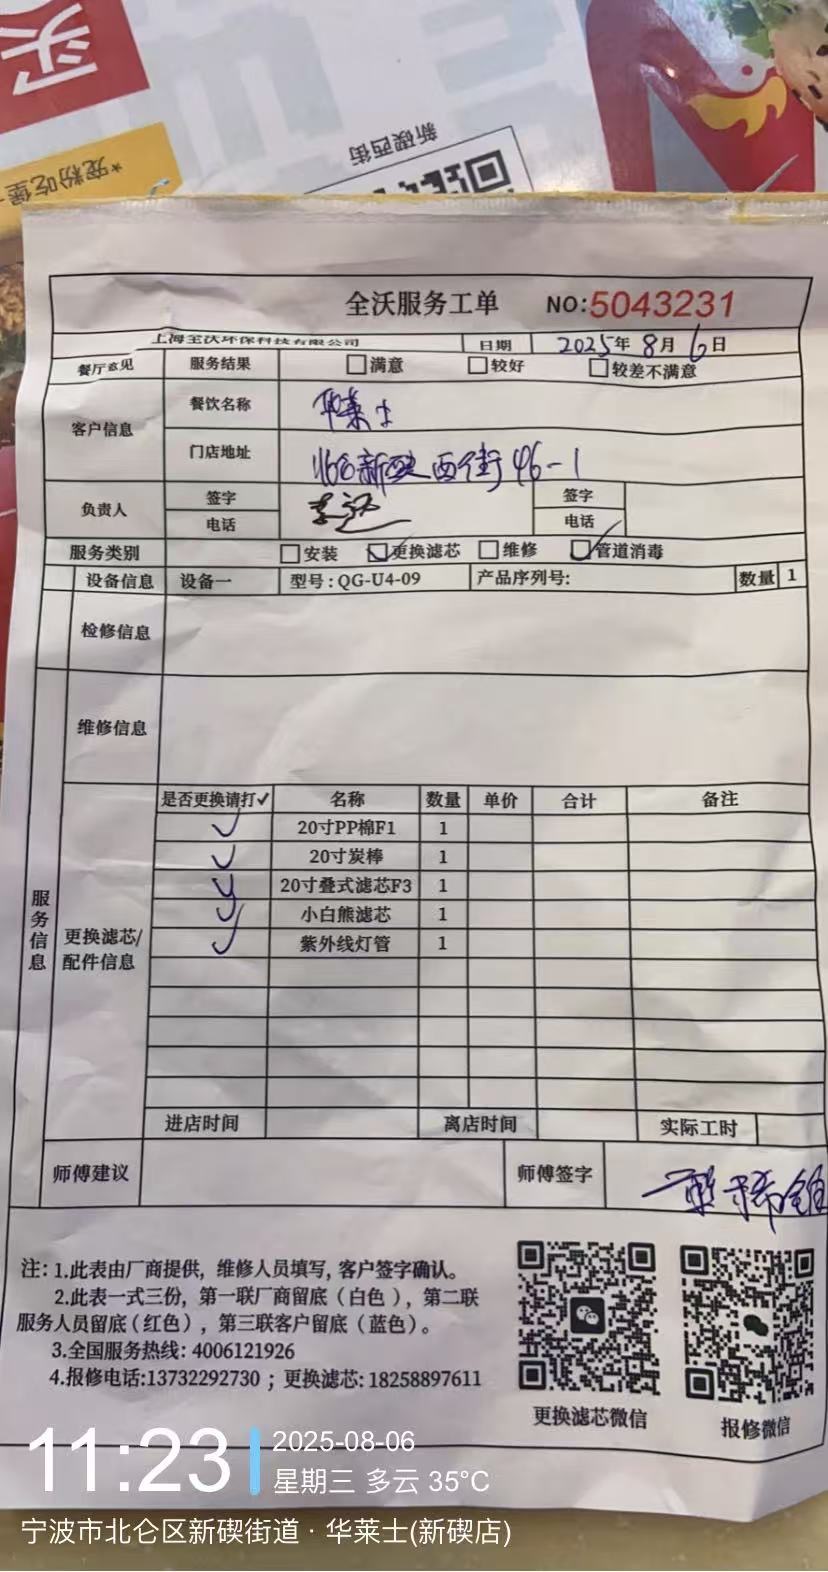 买
*宠粉吃堡
新碶西街
全沃服务工单 NO:5043231
上海全沃环保科技有限公司 日期 2025年8月6日
餐厅意见 服务结果 □满意 □较好 □较差不满意
客户信息 餐饮名称 华莱士
门店地址 北仑新碶西街46-1
负责人 签字 签字
电话 电话
服务类别 □安装 ☑更换滤芯 □维修 ☑管道消毒
设备信息 设备一 型号:QG-U4-09 产品序列号: 数量 1
检修信息
维修信息
服务信息
更换滤芯/配件信息
是否更换请打✓ 名称 数量 单价 合计 备注
✓ 20寸PP棉F1 1
✓ 20寸炭棒 1
✓ 20寸叠式滤芯F3 1
✓ 小白熊滤芯 1
✓ 紫外线灯管 1
进店时间 离店时间 实际工时
师傅建议 师傅签字
注:1.此表由厂商提供,维修人员填写,客户签字确认。
2.此表一式三份,第一联厂商留底(白色),第二联
服务人员留底(红色),第三联客户留底(蓝色)。
3.全国服务热线:4006121926
4.报修电话:13732292730;更换滤芯:18258897611
更换滤芯微信 报修微信
11:23 2025-08-06
星期三 多云 35°C
宁波市北仑区新碶街道·华莱士(新碶店)